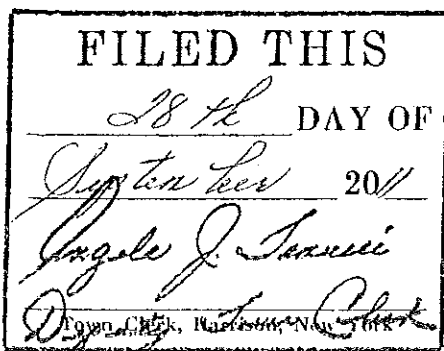 FILED THIS
28th DAY OF
September 2011
Angelo J.
Deputy Town Clerk
Town Clerk, Harrison, New York